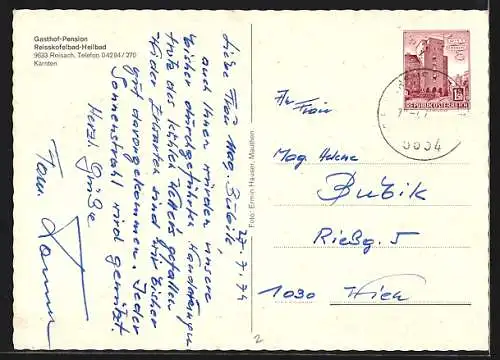 Gasthof-Pension
Reisskofelbad-Heilbad
9633 Reisach, Telefon 04284/270
Kärnten
27.7.74
Liebe Frau Mag. Bubik,
auch Ihnen würden unsere
bisher durchgeführten Wanderungen
trotz des Wetters gefallen
Wider Erwarten sind wir bisher
gut davongekommen. Jeder
Sonnenstrahl wird genützt.
Herzl. Grüße
Fam.
Foto: Erwin Häuser, Mauthen
REPUBLIK ÖSTERREICH
An Frau
Mag. Helene
Bubik
Rießg. 5
1030 Wien
2